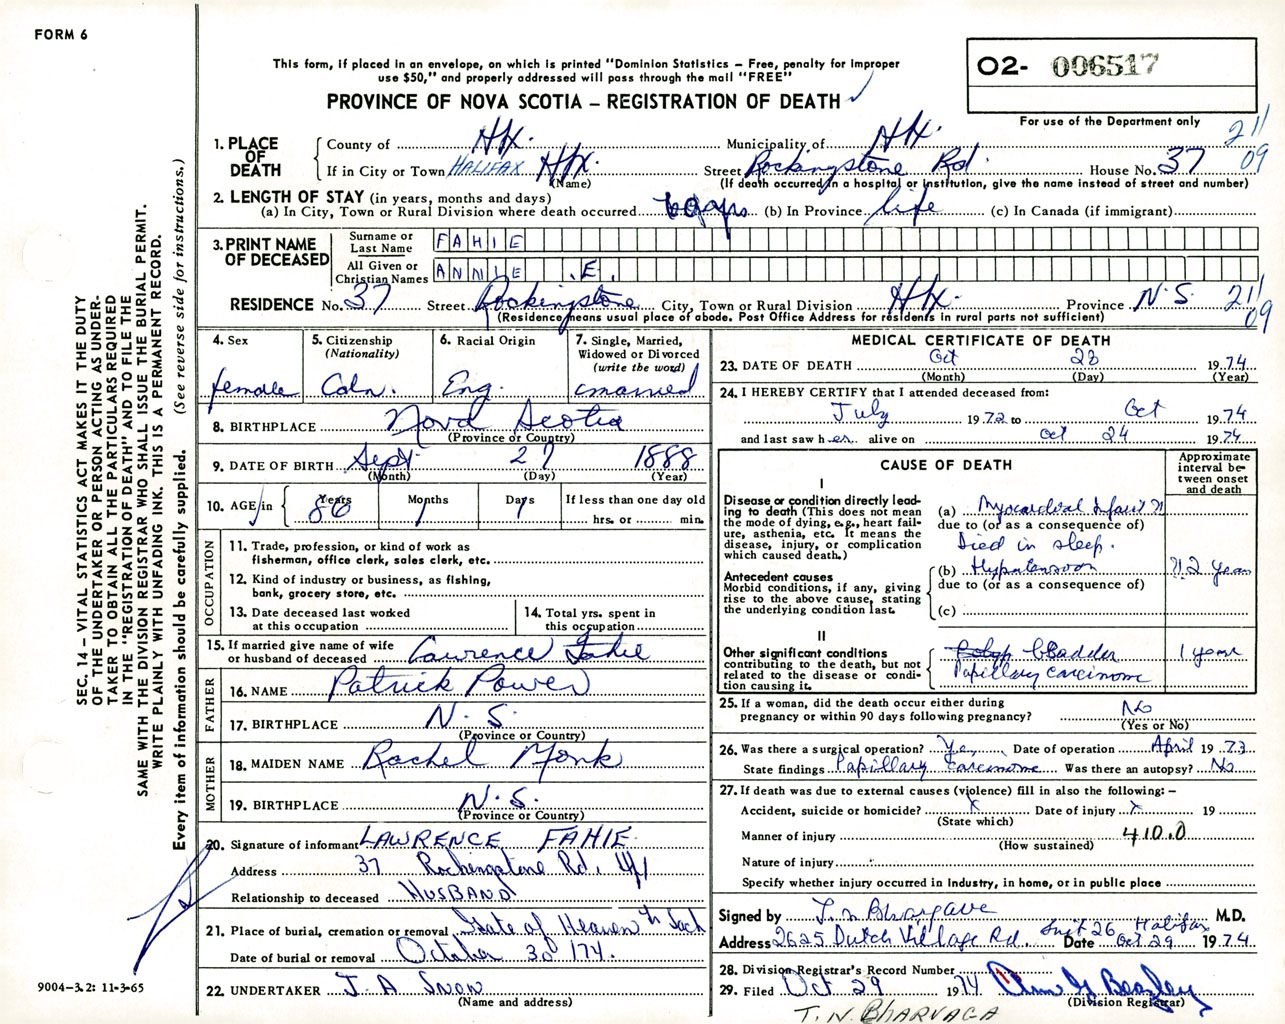 FORM 6
This form, if placed in an envelope, on which is printed "Dominion Statistics – Free, penalty for improper
use $50," and properly addressed will pass through the mail "FREE"
PROVINCE OF NOVA SCOTIA – REGISTRATION OF DEATH
O2- 006517
For use of the Department only
211
09
SEC. 14 – VITAL STATISTICS ACT MAKES IT THE DUTY
OF THE UNDERTAKER OR PERSON ACTING AS UNDER-
TAKER TO OBTAIN ALL THE PARTICULARS REQUIRED
IN THE "REGISTRATION OF DEATH" AND TO FILE THE
SAME WITH THE DIVISION REGISTRAR WHO SHALL ISSUE THE BURIAL PERMIT.
WRITE PLAINLY WITH UNFADING INK. THIS IS A PERMANENT RECORD.
Every item of information should be carefully supplied. (See reverse side for instructions.)
1. PLACE OF DEATH
County of Hfx. Municipality of Hfx.
If in City or Town HALIFAX Hfx. Street Rockingstone Rd. House No. 37
(Name) (If death occurred in a hospital or institution, give the name instead of street and number)
2. LENGTH OF STAY (in years, months and days)
(a) In City, Town or Rural Division where death occurred (b) In Province life (c) In Canada (if immigrant)
3. PRINT NAME OF DECEASED
Surname or Last Name FAHIE
All Given or Christian Names ANNIE .E.
RESIDENCE No. 37 Street Rockingstone City, Town or Rural Division Hfx. Province N.S. 211
09
(Residence means usual place of abode. Post Office Address for residents in rural parts not sufficient)
4. Sex female
5. Citizenship (Nationality) Cdn.
6. Racial Origin Eng.
7. Single, Married, Widowed or Divorced (write the word) married
8. BIRTHPLACE Nova Scotia
(Province or Country)
9. DATE OF BIRTH Sept 27 1888
(Month) (Day) (Year)
10. AGE in Years 86 Months 1 Days 1 If less than one day old
hrs. or min.
OCCUPATION
11. Trade, profession, or kind of work as
fisherman, office clerk, sales clerk, etc.
12. Kind of industry or business, as fishing,
bank, grocery store, etc.
13. Date deceased last worked
at this occupation
14. Total yrs. spent in
this occupation
15. If married give name of wife
or husband of deceased Lawrence Fahie
FATHER
16. NAME Patrick Power
17. BIRTHPLACE N.S.
(Province or Country)
MOTHER
18. MAIDEN NAME Rachel Monk
19. BIRTHPLACE N.S.
(Province or Country)
20. Signature of informant LAWRENCE FAHIE
Address 37 Rockingstone Rd.
Relationship to deceased HUSBAND
21. Place of burial, cremation or removal Gate of Heaven Lr Sack
Date of burial or removal October 30/74.
22. UNDERTAKER J. A Snow
(Name and address)
9004-3.2: 11-3-65
MEDICAL CERTIFICATE OF DEATH
23. DATE OF DEATH Oct 28 1974
(Month) (Day) (Year)
24. I HEREBY CERTIFY that I attended deceased from:
July 1972 to Oct 1974
and last saw her alive on Oct 24 1974
CAUSE OF DEATH
Approximate interval between onset and death
I
Disease or condition directly lead-
ing to death (This does not mean
the mode of dying, e.g., heart fail-
ure, asthenia, etc. It means the
disease, injury, or complication
which caused death.)
(a) Myocardial Infarct ?
due to (or as a consequence of)
Died in sleep.
Antecedent causes
Morbid conditions, if any, giving
rise to the above cause, stating
the underlying condition last.
(b) Hypotension ?2 years
due to (or as a consequence of)
(c)
II
Other significant conditions
contributing to the death, but not
related to the disease or condi-
tion causing it.
Bladder 1 year
Papillary carcinome
25. If a woman, did the death occur either during
pregnancy or within 90 days following pregnancy? No
(Yes or No)
26. Was there a surgical operation? Yes Date of operation April 1973
State findings Papillary carcinome Was there an autopsy? No
27. If death was due to external causes (violence) fill in also the following: –
Accident, suicide or homicide? x Date of injury x 19
(State which)
Manner of injury 410.0
(How sustained)
Nature of injury
Specify whether injury occurred in industry, in home, or in public place
Signed by T. N Bhargave M.D.
Address 2625 Dutch Village Rd. Suit 26 Halifax Date Oct 29 1974
28. Division Registrar's Record Number
29. Filed Oct 29 1974
(Division Registrar)
T. N. BHARVAGA